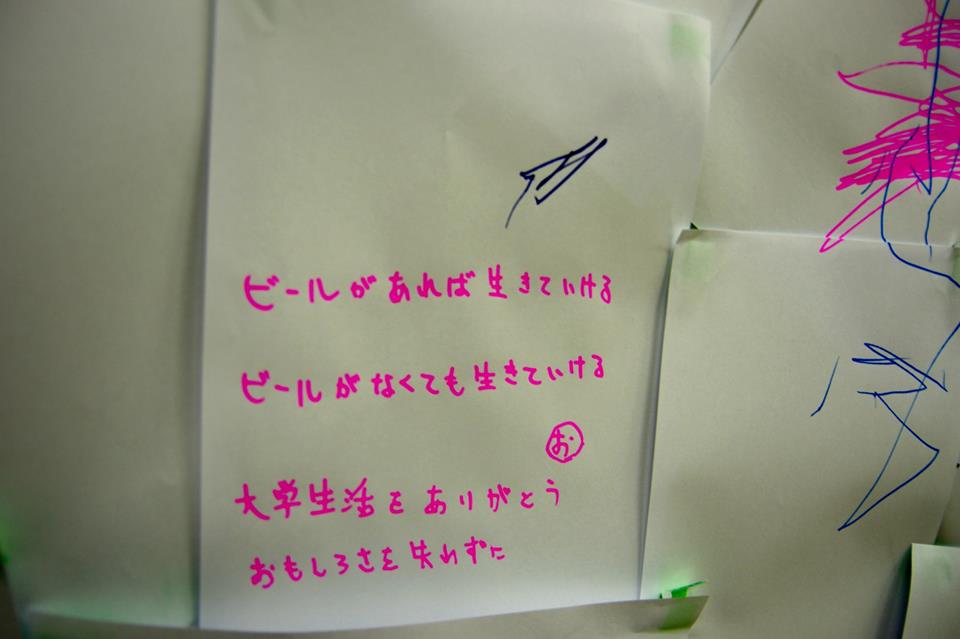 ビールがあれば生きていける
ビールがなくても生きていける
お
大学生活をありがとう
おもしろさを失わずに